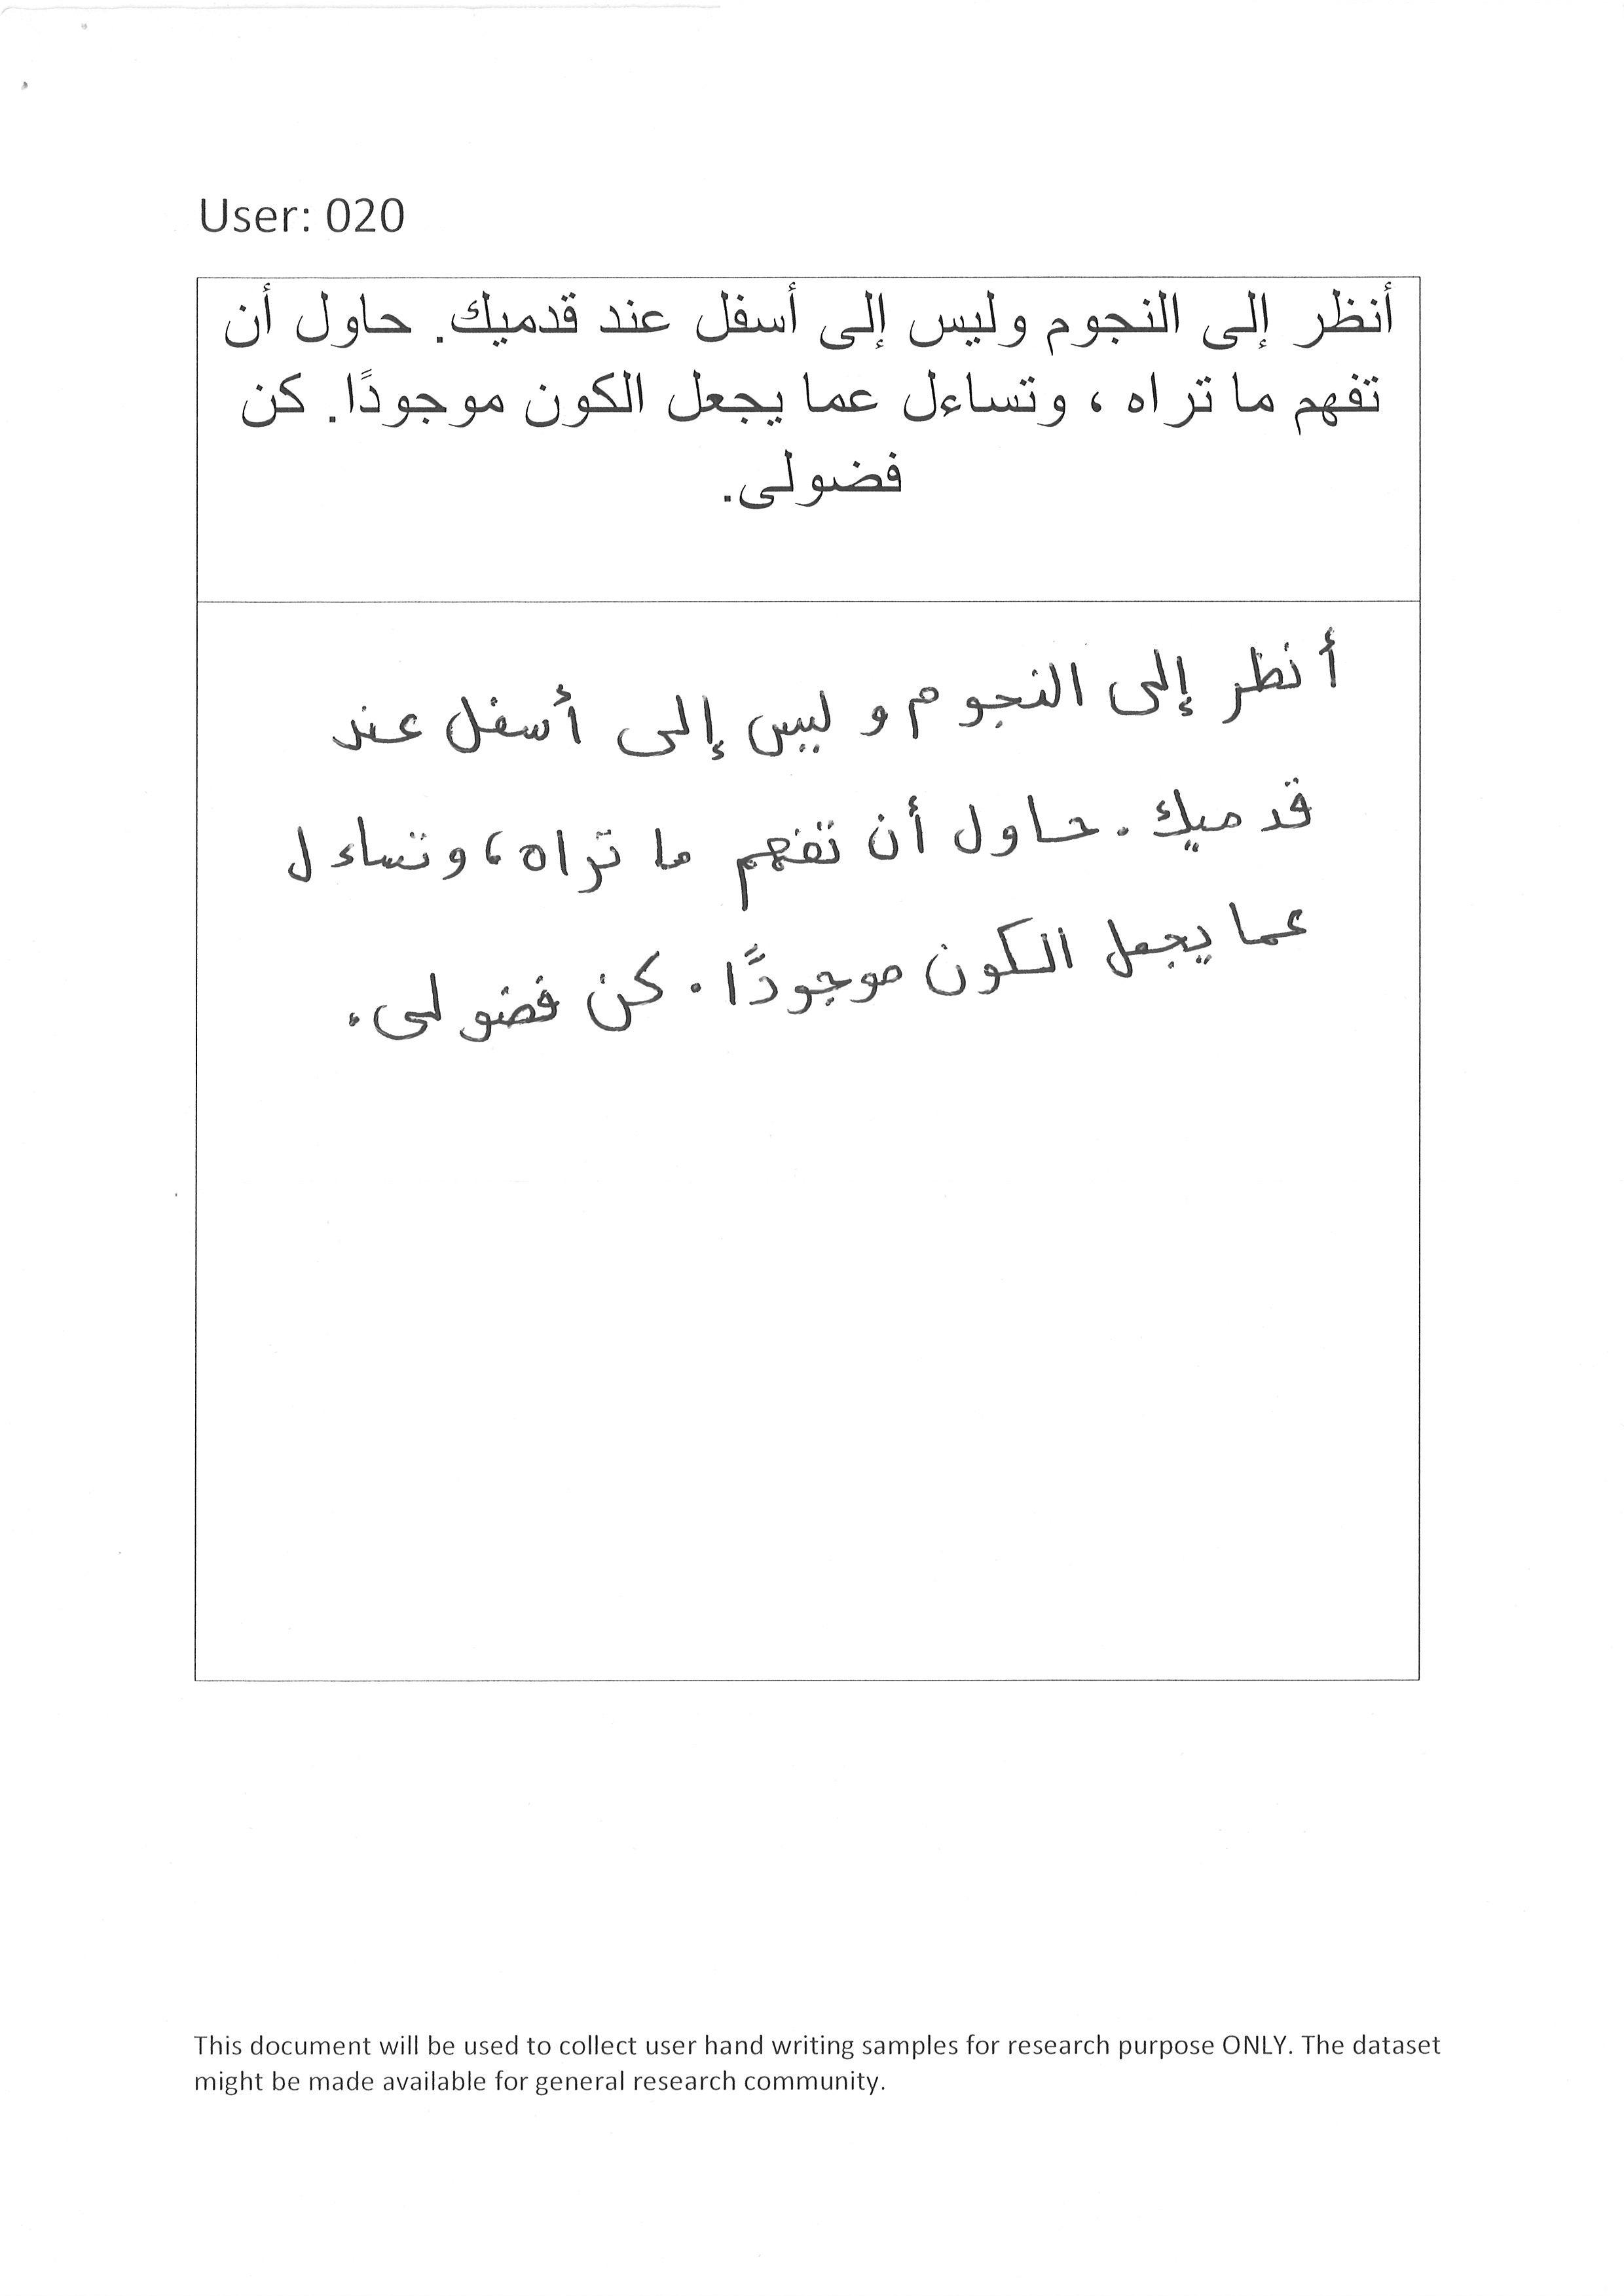 User: 020
أنظر إلى النجوم وليس إلى أسفل عند قدميك. حاول أن
تفهم ما تراه ، وتساءل عما يجعل الكون موجودًا. كن
فضولى.
أنظر إلى النجوم وليس إلى أسفل عند
قدميك. حاول أن تفهم ما تراه، وتساءل
عما يجعل الكون موجودًا. كن فضولى.
This document will be used to collect user hand writing samples for research purpose ONLY. The dataset
might be made available for general research community.